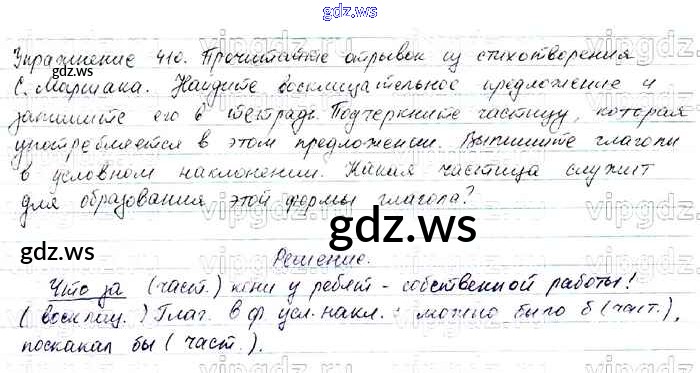 gdz.ws
Упражнение 410. Прочитайте отрывок из стихотворения
С. Маршака. Найдите восклицательное предложение и
запишите его в тетрадь. Подчеркните частицу, которая
употребляется в этом предложении. Выпишите глаголы
в условном наклонении. Какая частица служит
для образования этой формы глагола?
gdz.ws
gdz.ws
gdz.ws
gdz.ws
Решение.
Что за (част.) кони у ребят - собственной работы!
(восклиц.) Глаг. в ф. усл. накл.: можно было б (част.),
поскакал бы (част.).
gdz.ws
gdz.ws